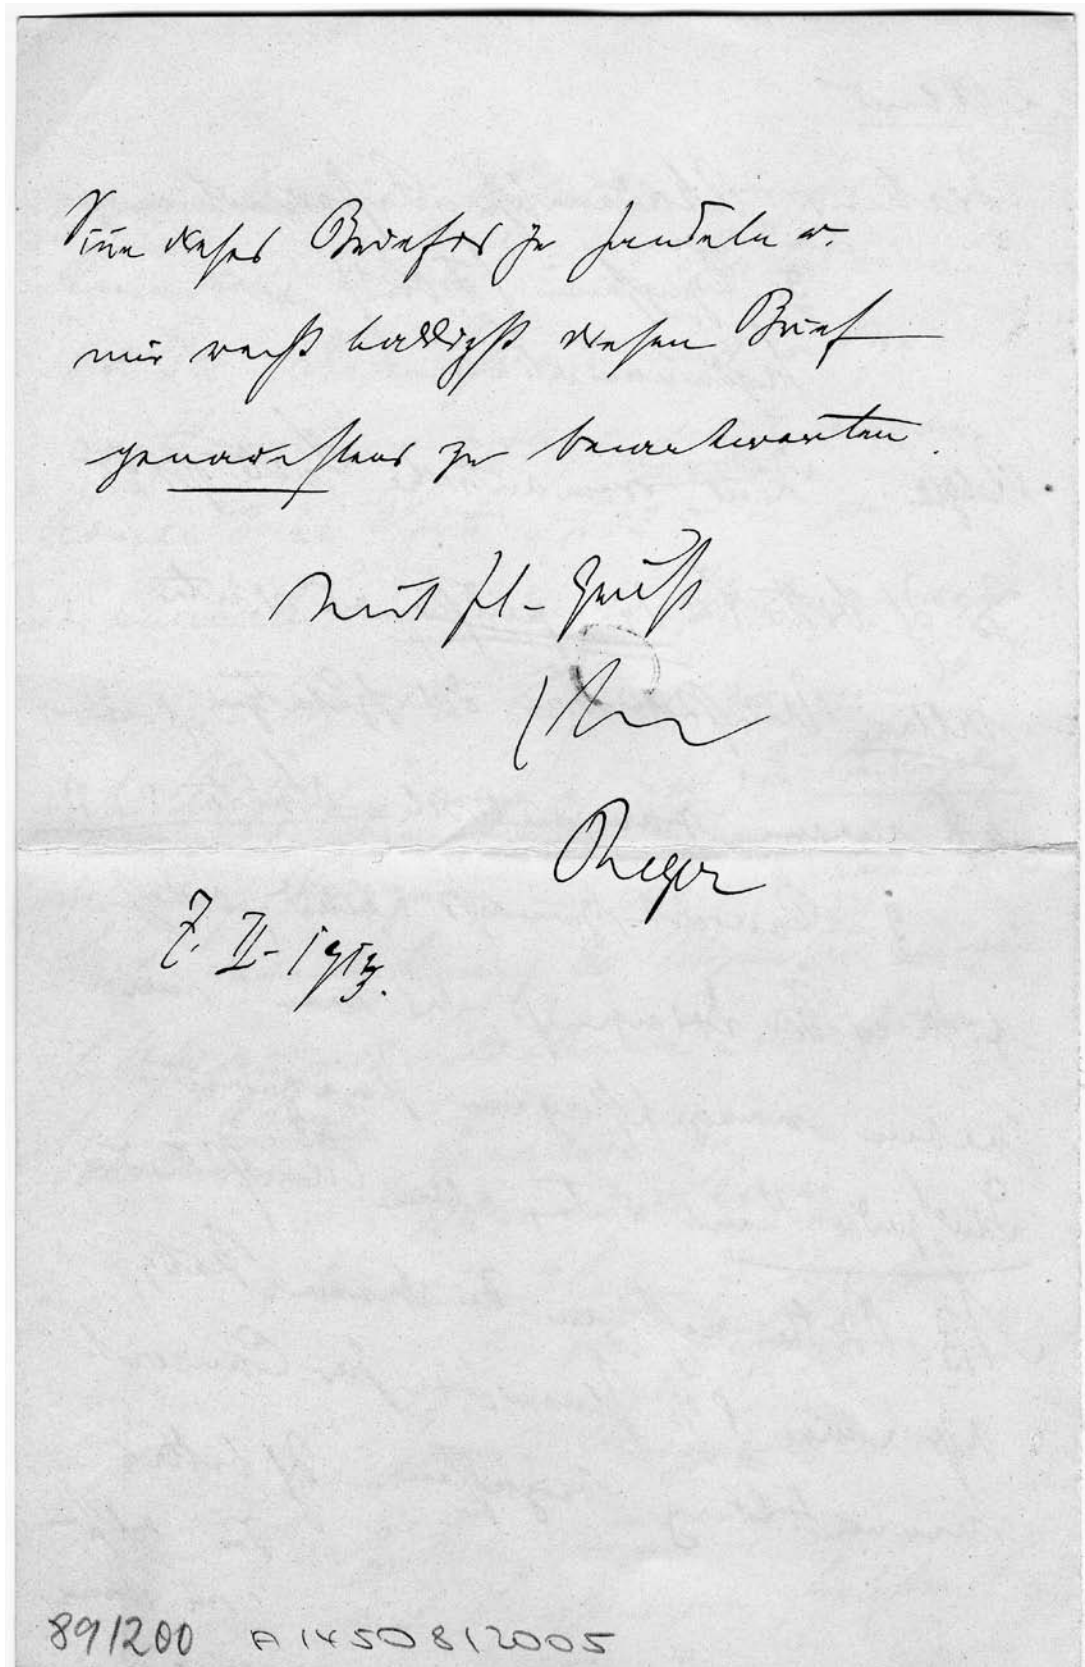 Sinne dieses Briefes zu handeln u.
mir recht baldigst diesen Brief
genauestens zu beantworten.
Mit fl. Gruß
Ihr
Reger
7. II. 1913.
89/200 A 1450812005